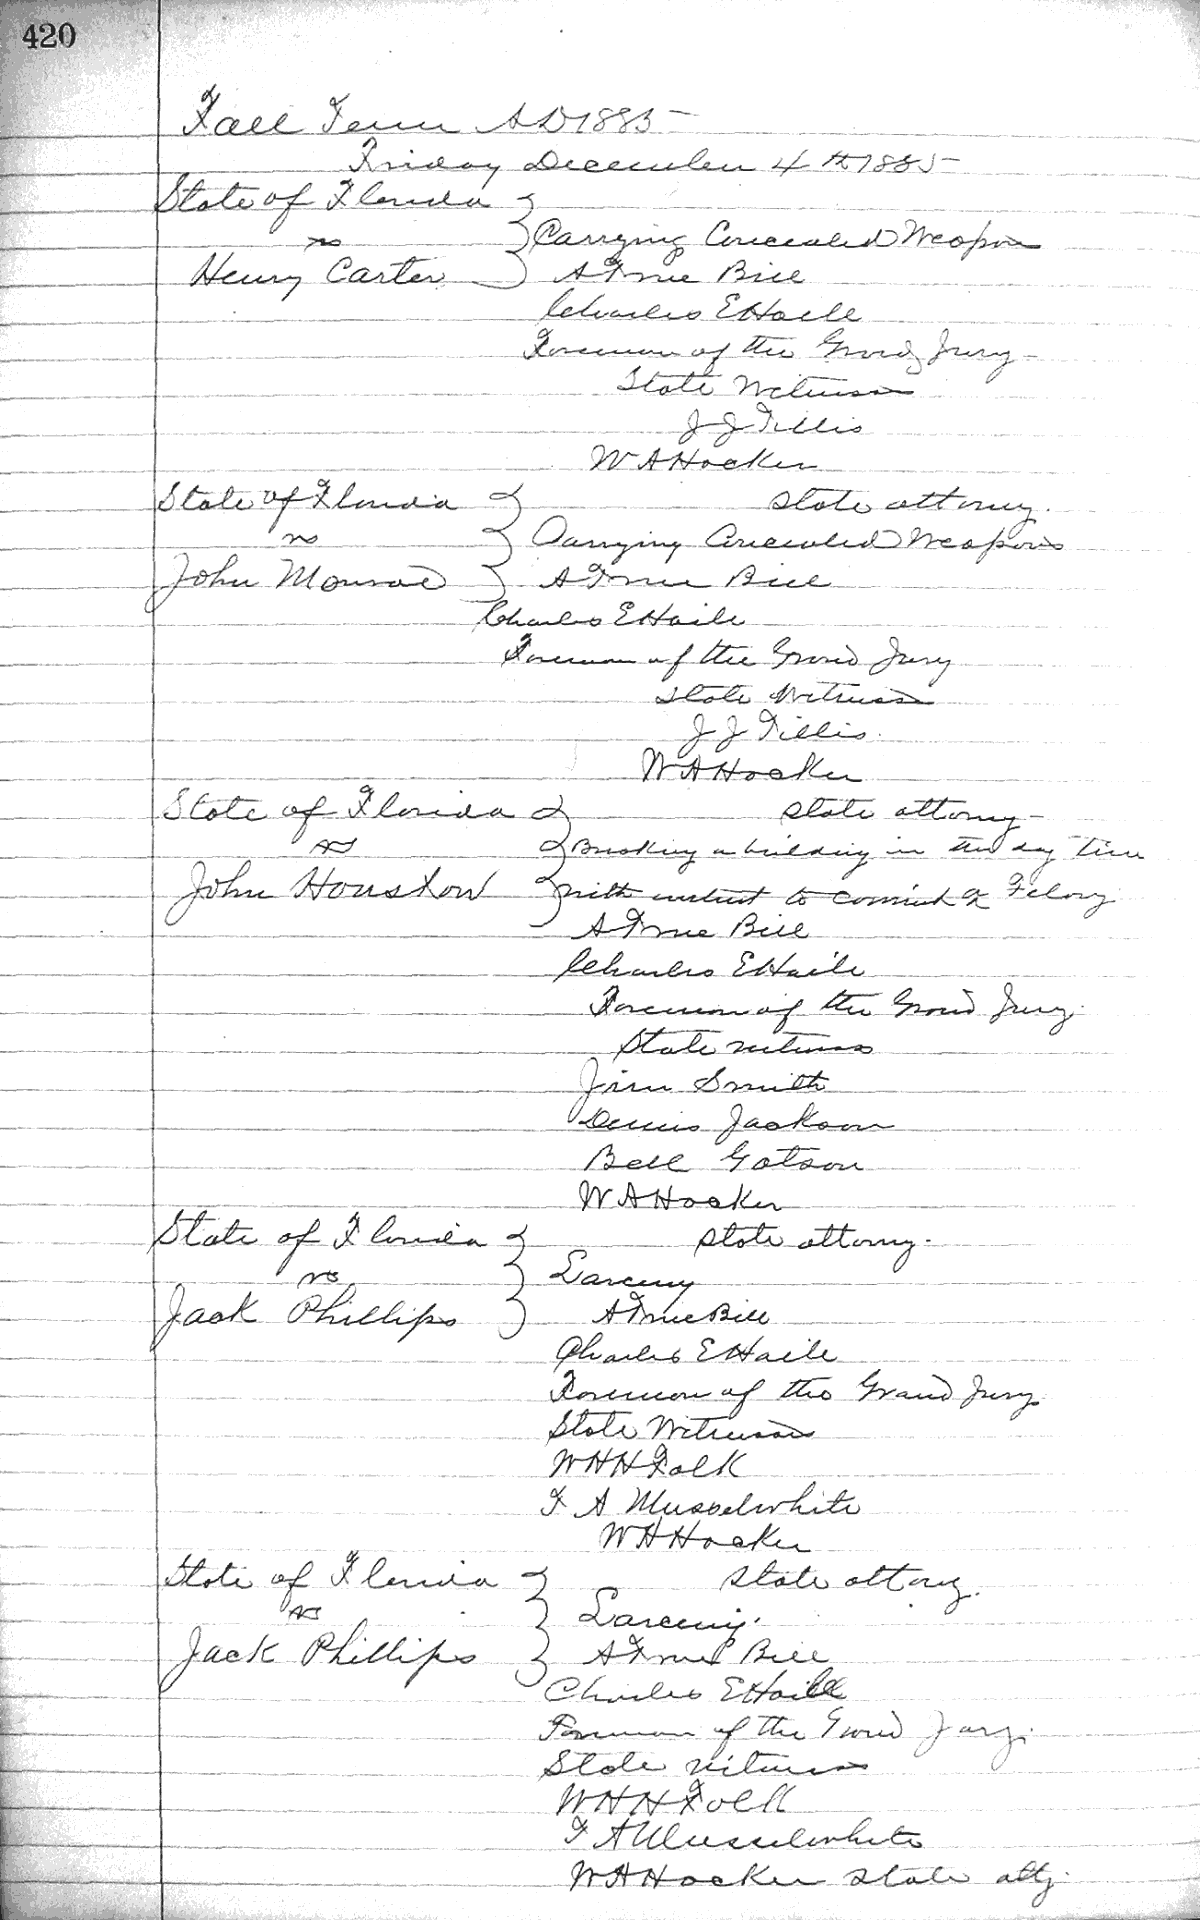 420
Fall Term AD 1885
Friday December 4th 1885
State of Florida
vs Carrying Concealed Weapons
Henry Carter A True Bill
Charles E Haile
Foreman of the Grand Jury
State Witness
J J Tillis
W A Hocker
State of Florida State attorney.
vs Carrying Concealed Weapons
John Monroe A True Bill
Charles E Haile
Foreman of the Grand Jury
State Witness
J J Tillis.
W A Hocker
State of Florida State attorney
vs Breaking a building in the day time
John Houston with intent to commit a Felony
A True Bill
Charles E Haile
Foreman of the Grand Jury.
State witness
Jim Smith
Dennis Jackson
Bell Gotson
W A Hocker
State of Florida State attorney.
vs Larceny
Jack Phillips A True Bill
Charles E Haile
Foreman of the Grand Jury
State Witness
W H H Folk
F A Musselwhite
W A Hocker
State of Florida State attorney.
vs Larceny.
Jack Phillips A True Bill
Charles E Haile
Foreman of the Grand Jury.
State witness
W H H Folk
F A Musselwhite
W A Hocker State atty.